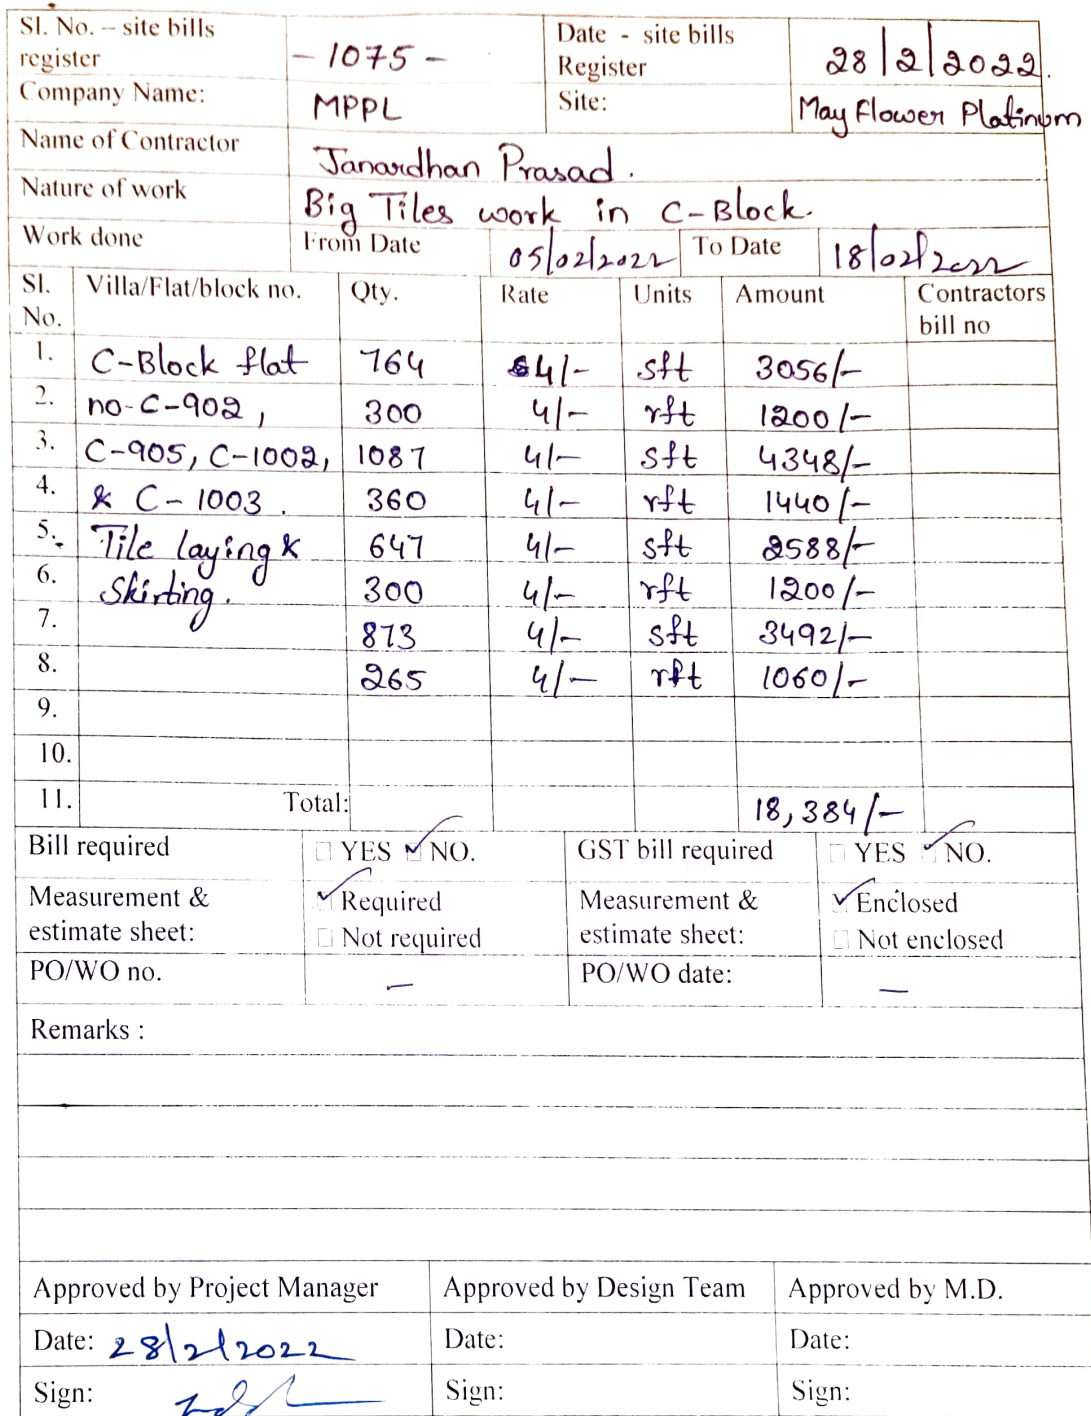 Sl. No. – site bills register - 1075 - Date - site bills Register 28/2/2022.
Company Name: MPPL Site: May Flower Platinum
Name of Contractor Janardhan Prasad.
Nature of work Big Tiles work in C-Block.
Work done From Date 05/02/2022 To Date 18/02/2022
Sl. No. Villa/Flat/block no. Qty. Rate Units Amount Contractors bill no
1. C-Block flat 764 4/- sft 3056/-
2. no-C-902, 300 4/- rft 1200/-
3. C-905, C-1002, 1087 4/- sft 4348/-
4. & C-1003. 360 4/- rft 1440/-
5. Tile laying & 647 4/- sft 2588/-
6. Skirting. 300 4/- rft 1200/-
7. 873 4/- sft 3492/-
8. 265 4/- rft 1060/-
9.
10.
11. Total: 18,384/-
Bill required YES NO. GST bill required YES NO.
Measurement & estimate sheet: Required Measurement & estimate sheet: Enclosed
Not required Not enclosed
PO/WO no. - PO/WO date: -
Remarks :
Approved by Project Manager Approved by Design Team Approved by M.D.
Date: 28/2/2022 Date: Date:
Sign: Sign: Sign: